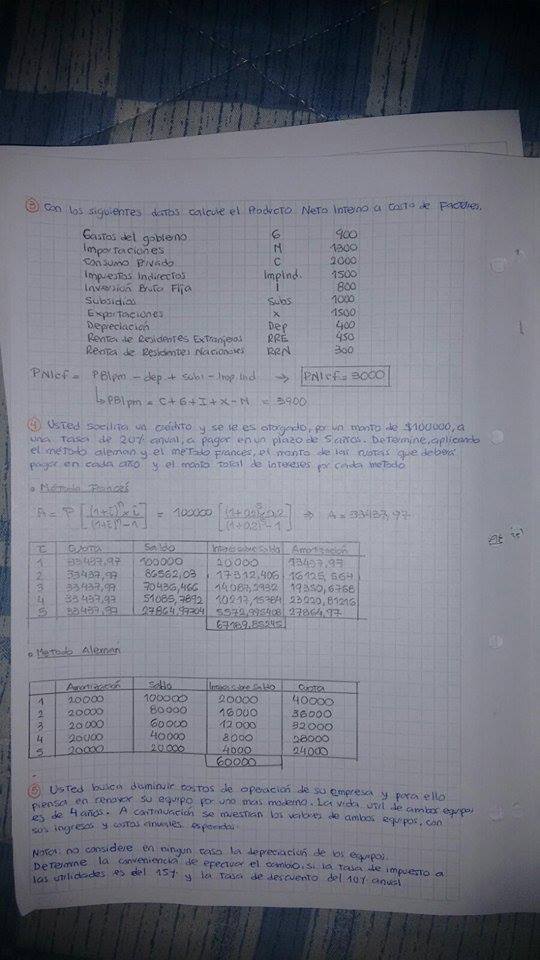 ③ Con los siguientes datos calcule el Producto Neto Interno a Costo de Factores.
Gastos del gobierno G 900
Importaciones M 1300
Consumo Privado C 2000
Impuestos Indirectos ImpInd. 1500
Inversión Bruta Fija I 800
Subsidios Subs 1000
Exportaciones X 1500
Depreciación Dep 400
Renta de Residentes Extranjeros RRE 450
Renta de Residentes Nacionales RRN 300
PNIcf = PBIpm - dep + subs - Imp. Ind → PNIcf = 3000
↳ PBIpm = C + G + I + X - M = 3900
④ Usted socilita un crédito y se le es otorgado, por un monto de $100000, a
una tasa de 20% anual, a pagar en un plazo de 5 años. Determine, aplicando
el método aleman y el metodo francés, el monto de las cuotas que deberá
pagar en cada año y el monto total de intereses por cada metodo
• Método Francés
A = P [(1+i)^n × i / (1+i)^n - 1] = 100000 [(1+0,2)^5 × 0,2 / (1+0,2)^5 - 1] ⇒ A = 33437,97
Cuota Saldo Interes sobre Saldo Amortización
1 33437,97 100000 20000 13437,97
2 33437,97 86562,03 17312,406 16125,564
3 33437,97 70436,466 14087,2932 19350,6768
4 33437,97 51085,7892 10217,15784 23220,81216
5 33437,97 27864,97704 5572,995408 27864,97
67189,85245
• Metodo Aleman
Amortización Saldo Interes sobre Saldo Cuota
1 20000 100000 20000 40000
2 20000 80000 16000 36000
3 20000 60000 12000 32000
4 20000 40000 8000 28000
5 20000 20000 4000 24000
60000
⑤ Usted busca disminuir costos de operación de su empresa y para ello
piensa en renovar su equipo por uno mas moderno. La vida util de ambos equipos
es de 4 años. A continuación se muestran los valores de ambos equipos, con
sus ingresos y costos anuales esperados.
Nota: no considere en ningun caso la depreciación de los equipos.
Determine la conveniencia de efectuar el cambio, si la tasa de impuesto a
las utilidades es del 15% y la tasa de descuento del 10% anual